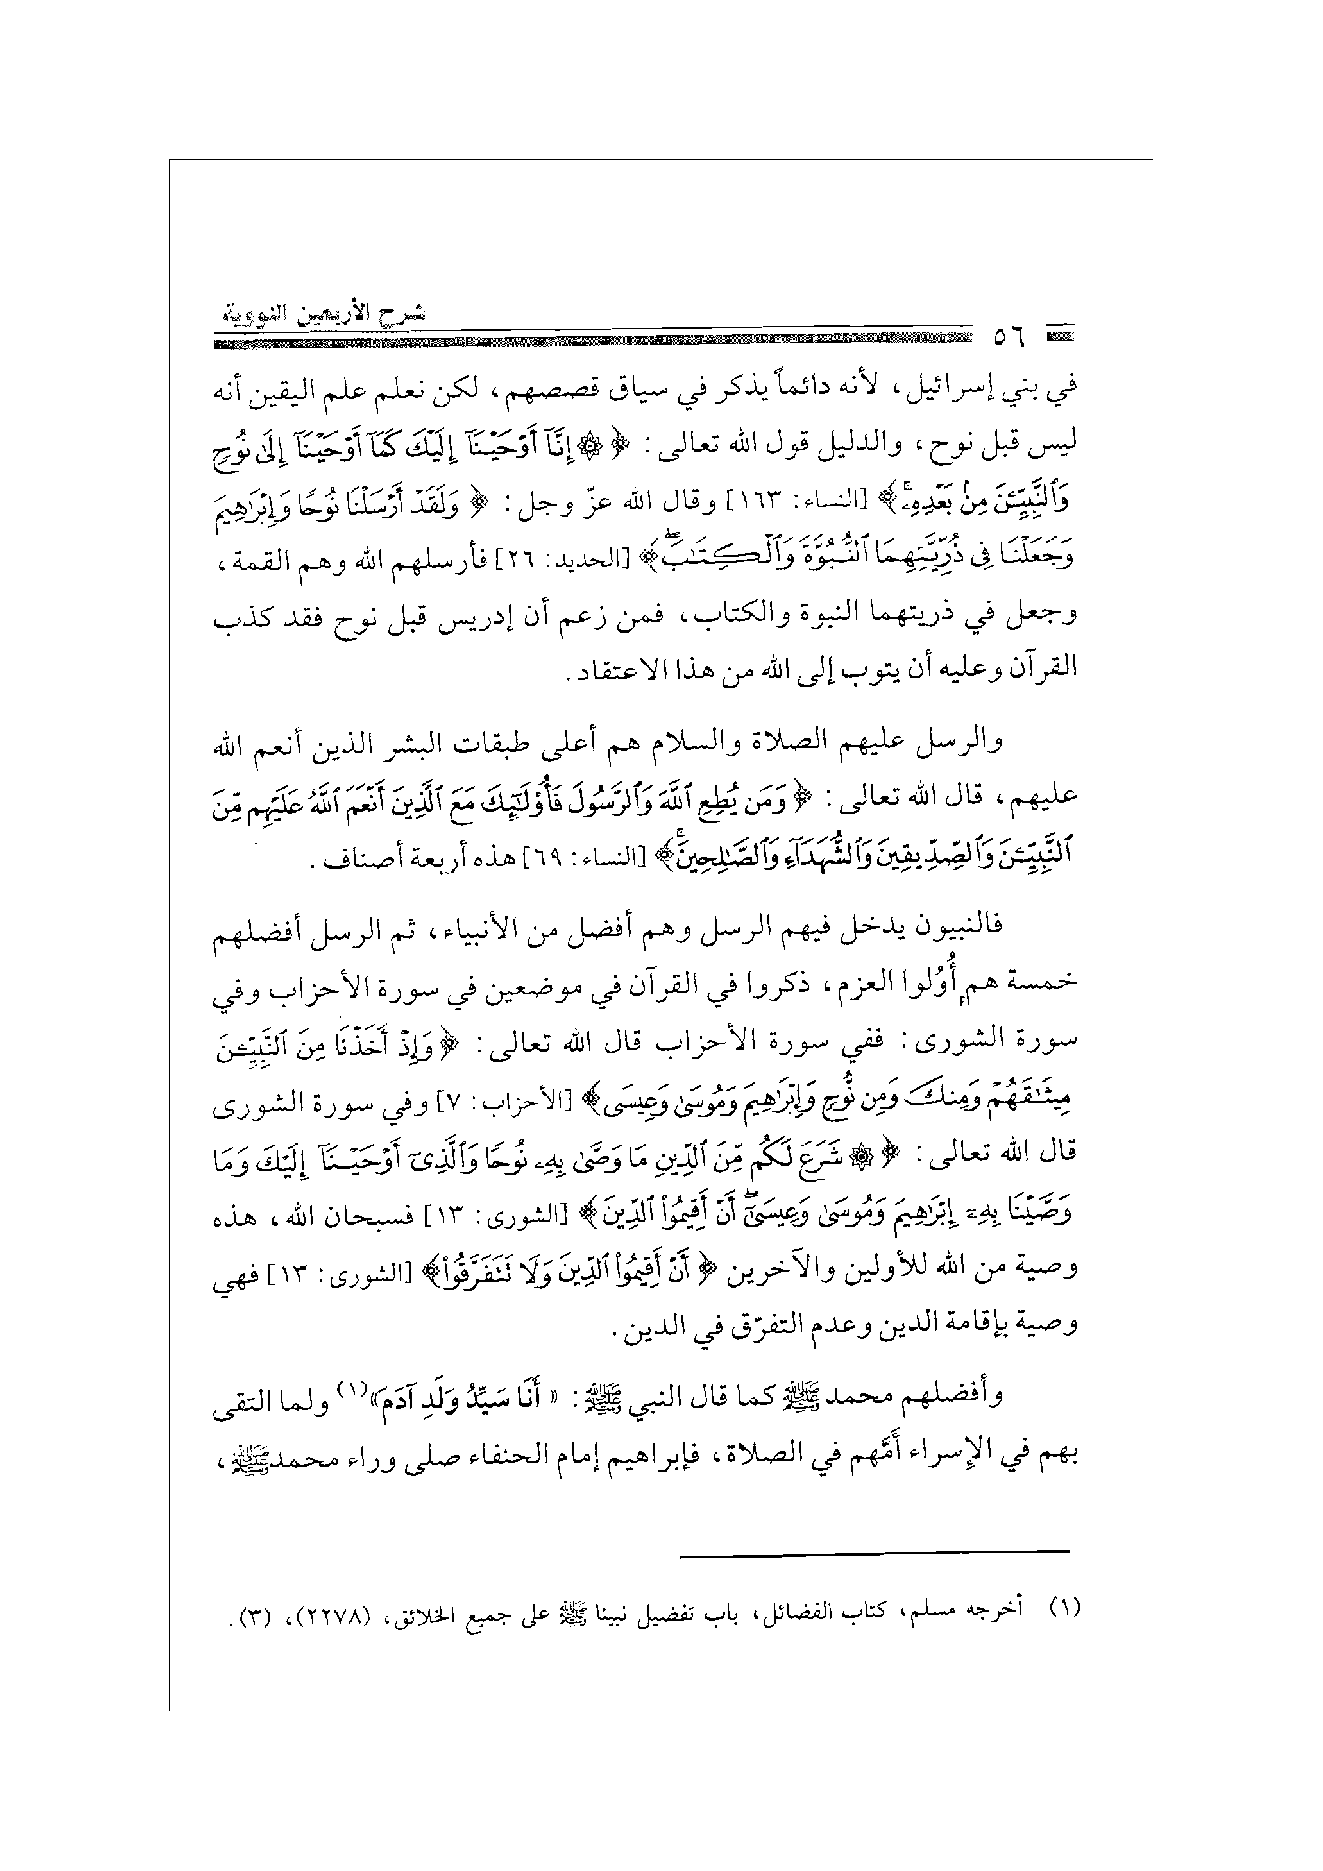 شرح الأربعين النووية
٥٦
في بني إسرائيل، لأنه دائماً يذكر في سياق قصصهم، لكن نعلم علم اليقين أنه
ليس قبل نوح، والدليل قول الله تعالى: ﴿۞ إِنَّآ أَوْحَيْنَآ إِلَيْكَ كَمَآ أَوْحَيْنَآ إِلَىٰ نُوحٍ
وَٱلنَّبِيِّـۧنَ مِنۢ بَعْدِهِۦۚ﴾ [النساء: ١٦٣] وقال الله عزّ وجل: ﴿وَلَقَدْ أَرْسَلْنَا نُوحًا وَإِبْرَٰهِيمَ
وَجَعَلْنَا فِى ذُرِّيَّتِهِمَا ٱلنُّبُوَّةَ وَٱلْكِتَٰبَۖ﴾ [الحديد: ٢٦] فأرسلهم الله وهم القمة،
وجعل في ذريتهما النبوة والكتاب، فمن زعم أن إدريس قبل نوح فقد كذب
القرآن وعليه أن يتوب إلى الله من هذا الاعتقاد.
والرسل عليهم الصلاة والسلام هم أعلى طبقات البشر الذين أنعم الله
عليهم، قال الله تعالى: ﴿وَمَن يُطِعِ ٱللَّهَ وَٱلرَّسُولَ فَأُو۟لَٰٓئِكَ مَعَ ٱلَّذِينَ أَنْعَمَ ٱللَّهُ عَلَيْهِم مِّنَ
ٱلنَّبِيِّـۧنَ وَٱلصِّدِّيقِينَ وَٱلشُّهَدَآءِ وَٱلصَّٰلِحِينَۚ﴾ [النساء: ٦٩] هذه أربعة أصناف.
فالنبيون يدخل فيهم الرسل وهم أفضل من الأنبياء، ثم الرسل أفضلهم
خمسة هم أُوْلوا العزم، ذكروا في القرآن في موضعين في سورة الأحزاب وفي
سورة الشورى: ففي سورة الأحزاب قال الله تعالى: ﴿وَإِذْ أَخَذْنَا مِنَ ٱلنَّبِيِّـۧنَ
مِيثَٰقَهُمْ وَمِنكَ وَمِن نُّوحٍ وَإِبْرَٰهِيمَ وَمُوسَىٰ وَعِيسَى﴾ [الأحزاب: ٧] وفي سورة الشورى
قال الله تعالى: ﴿۞ شَرَعَ لَكُم مِّنَ ٱلدِّينِ مَا وَصَّىٰ بِهِۦ نُوحًا وَٱلَّذِىٓ أَوْحَيْنَآ إِلَيْكَ وَمَا
وَصَّيْنَا بِهِۦٓ إِبْرَٰهِيمَ وَمُوسَىٰ وَعِيسَىٰٓۖ أَنْ أَقِيمُوا۟ ٱلدِّينَ﴾ [الشورى: ١٣] فسبحان الله، هذه
وصية من الله للأولين والآخرين ﴿أَنْ أَقِيمُوا۟ ٱلدِّينَ وَلَا تَتَفَرَّقُوا۟﴾ [الشورى: ١٣] فهي
وصية بإقامة الدين وعدم التفرّق في الدين.
وأفضلهم محمد ﷺ كما قال النبي ﷺ: «أَنَا سَيِّدُ وَلَدِ آدَمَ»(١) ولما التقى
بهم في الإسراء أَمَّهم في الصلاة، فإبراهيم إمام الحنفاء صلى وراء محمد ﷺ،
(١) أخرجه مسلم، كتاب الفضائل، باب تفضيل نبينا ﷺ على جميع الخلائق، (٢٢٧٨)، (٣).